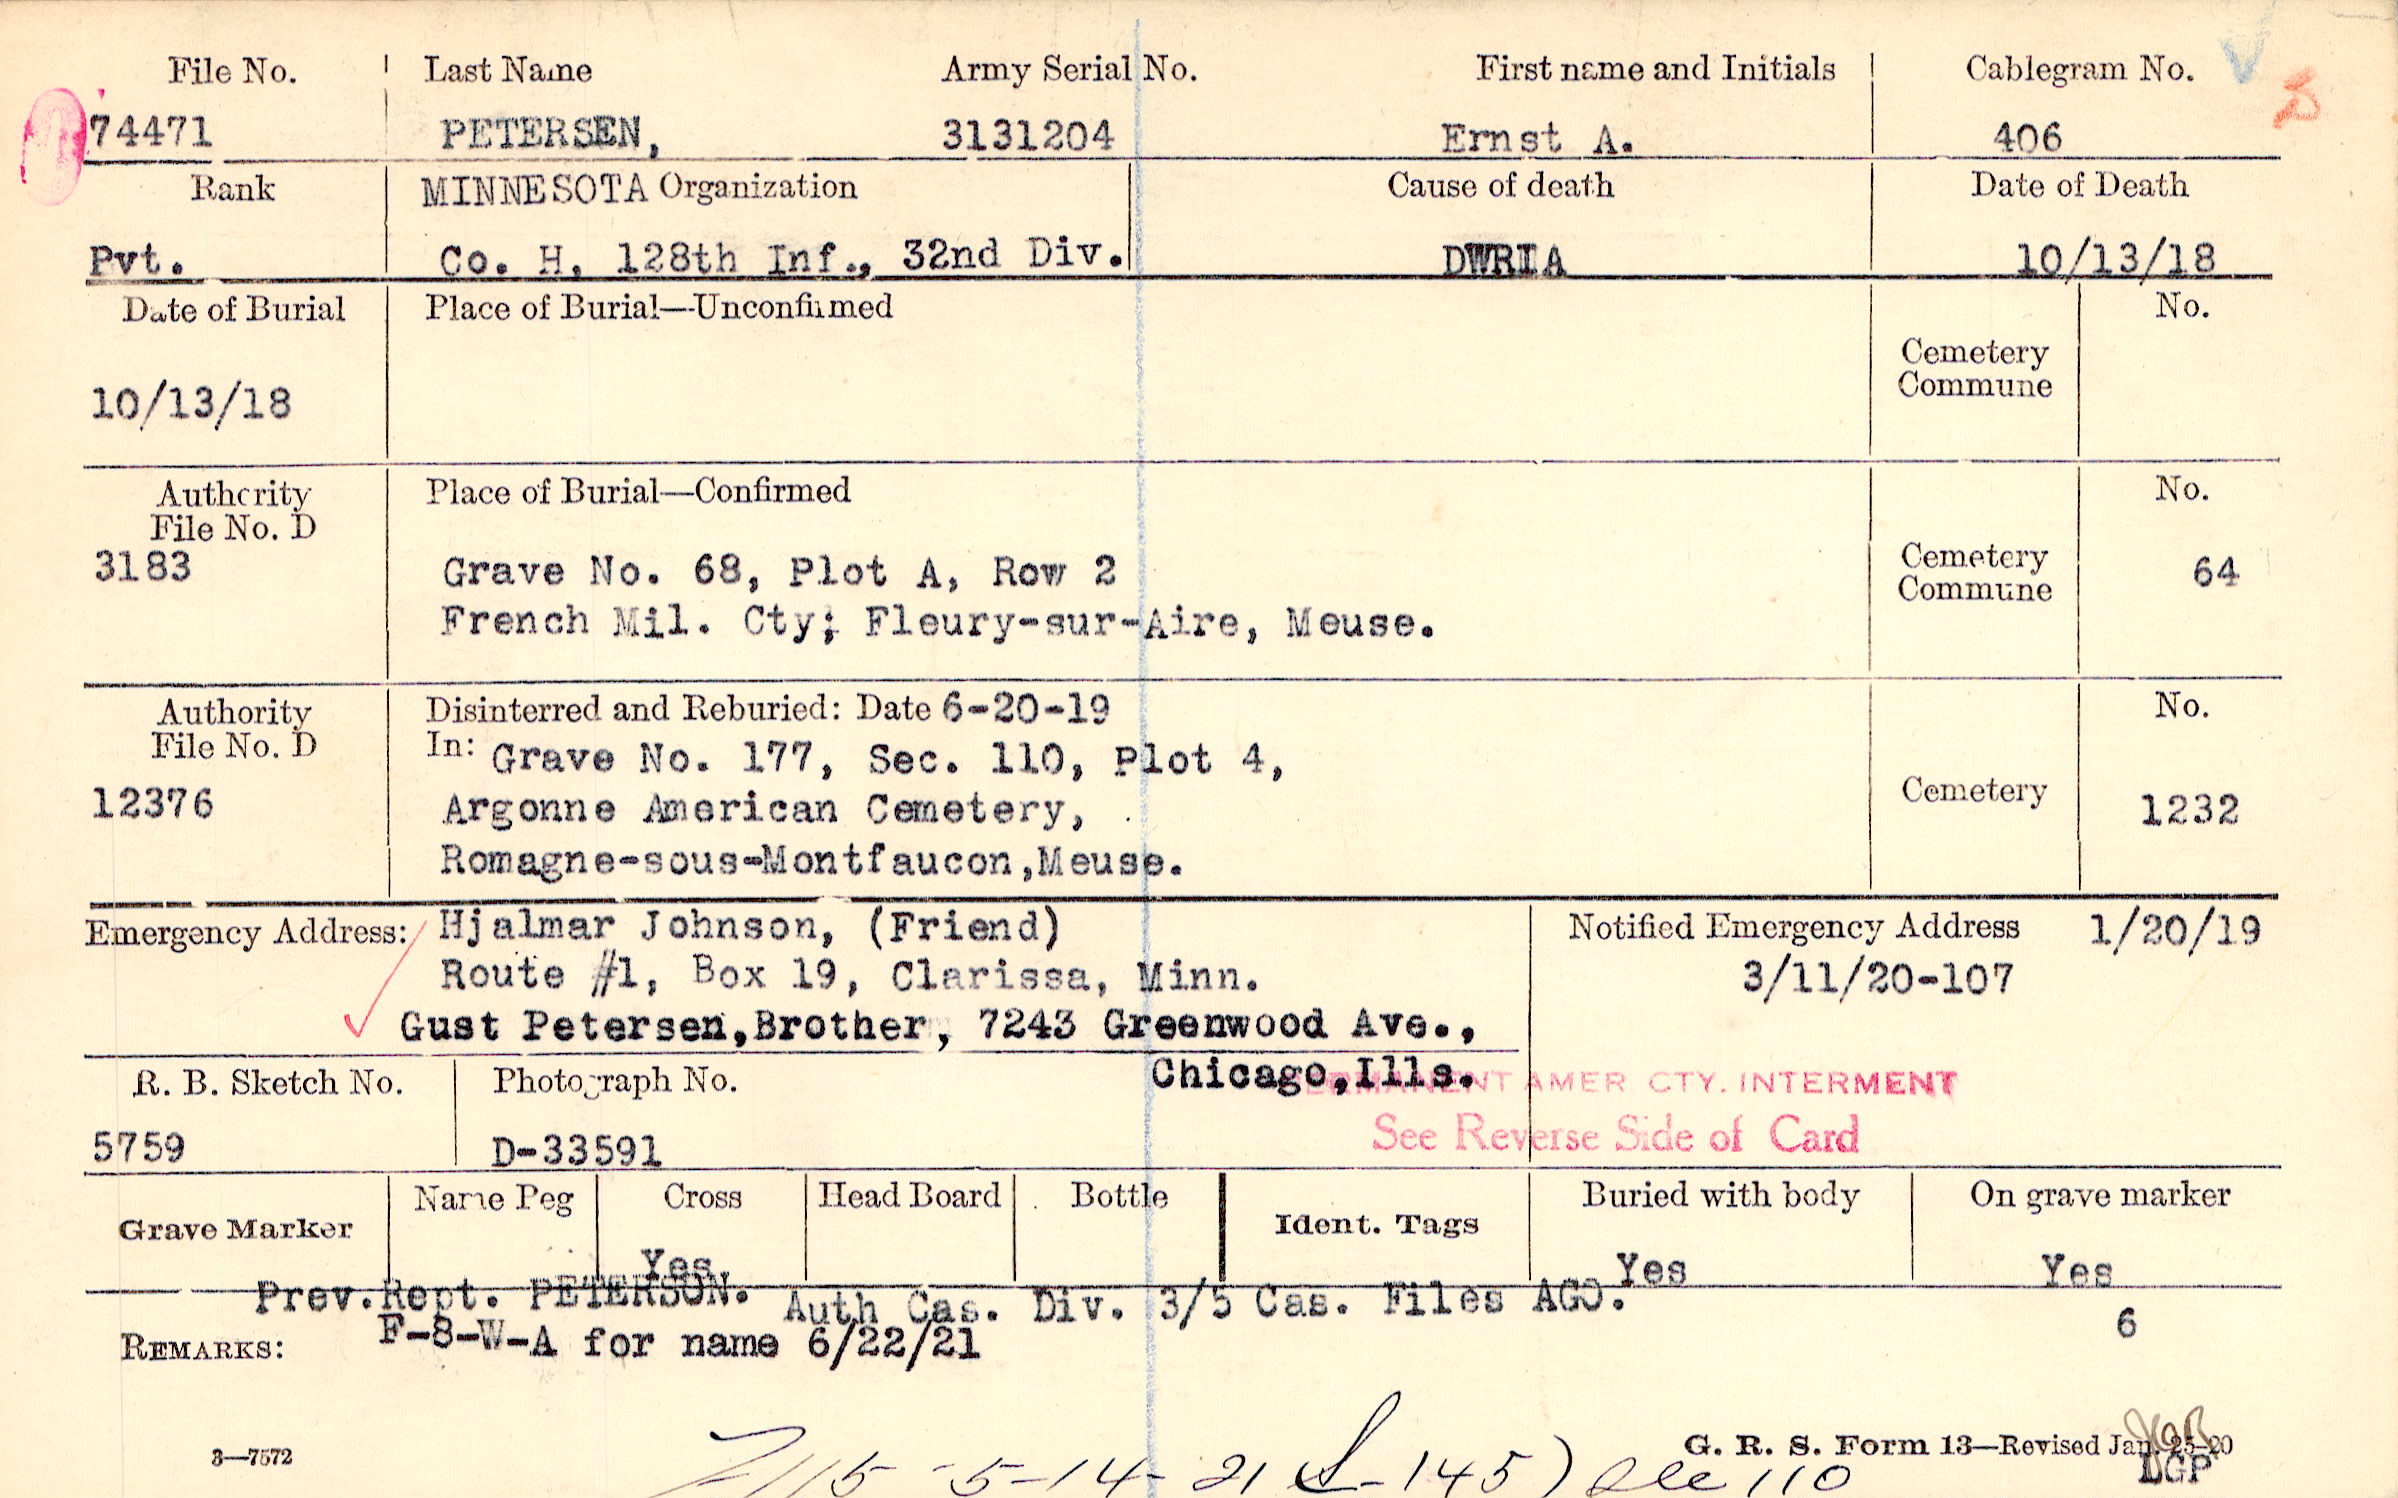 File No. Last Name Army Serial No. First name and Initials Cablegram No.
74471 PETERSEN, 3131204 Ernst A. 406
Rank MINNESOTA Organization Cause of death Date of Death
Pvt. Co. H, 128th Inf., 32nd Div. DWRIA 10/13/18
Date of Burial Place of Burial—Unconfirmed No.
Cemetery
Commune
10/13/18
Authority Place of Burial—Confirmed No.
File No. D
3183 Grave No. 68, Plot A, Row 2 Cemetery 64
Commune
French Mil. Cty; Fleury-sur-Aire, Meuse.
Authority Disinterred and Reburied: Date 6-20-19 No.
File No. D In: Grave No. 177, Sec. 110, Plot 4,
12376 Argonne American Cemetery, Cemetery 1232
Romagne-sous-Montfaucon,Meuse.
Emergency Address: Hjalmar Johnson, (Friend) Notified Emergency Address 1/20/19
Route #1, Box 19, Clarissa, Minn. 3/11/20-107
Gust Petersen,Brother, 7243 Greenwood Ave.,
Chicago,Ills.
R. B. Sketch No. Photograph No. PERMANENT AMER CTY. INTERMENT
5759 D-33591 See Reverse Side of Card
Grave Marker Name Peg Cross Head Board Bottle Ident. Tags Buried with body On grave marker
Yes Yes Yes
Prev.Rept. PETERSON. Auth Cas. Div. 3/5 Cas. Files AGO.
6
REMARKS: F-8-W-A for name 6/22/21
3—7572 G. R. S. Form 13—Revised Jan. 25-20
5-14-21 145) 110 LGP